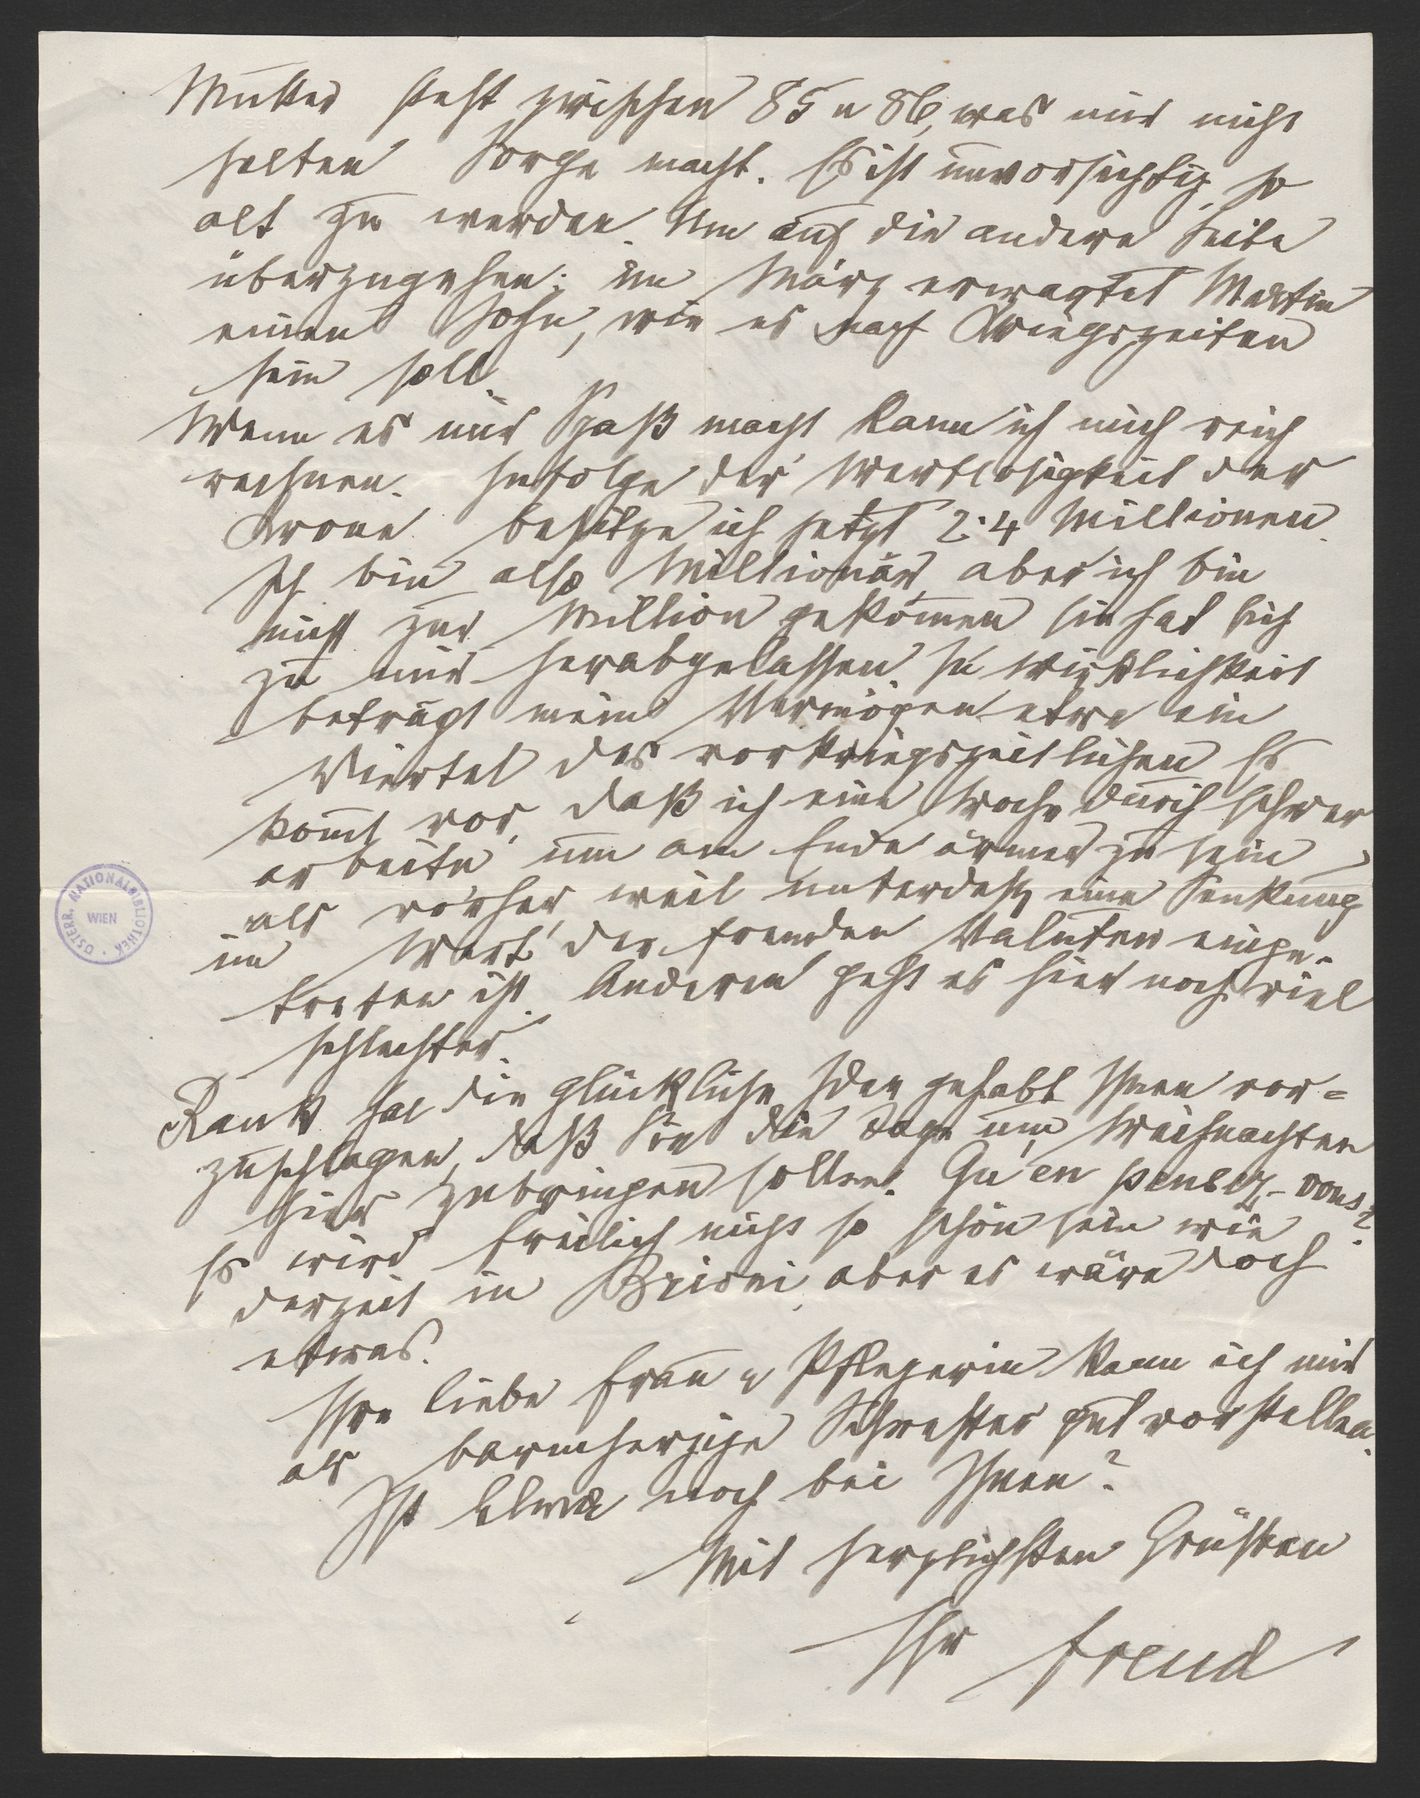 Mutter steht zwischen 85 u 86, was mir nicht
selten Sorge macht. Es ist unvorsichtig, so
alt zu werden. Um auf die andere Seite
überzugehen: im März erwartet Martin
einen Sohn, wie es nach Kriegszeiten
sein soll.
Wenn es mir Spaß macht kann ich mich reich
rechnen. Infolge der Wertlosigkeit der
Krone besitze ich jetzt 2·4 Millionen.
Ich bin also Millionär, aber ich bin
nicht zur Million gekommen sie hat sich
zu mir herabgelassen. In Wirklichkeit
beträgt mein Vermögen etwa ein
Viertel des vorkriegszeitlichen. Es
kommt vor, daß ich eine Woche durch schwer
arbeite um am Ende ärmer zu sein
als vorher, weil unterdeß eine Senkung
im Wert der fremden Valuten einge-
treten ist. Anderen geht es hier noch viel
schlechter.
Rank hat die glückliche Idee gehabt Ihnen vor=
zuschlagen, daß Sie die Tage um Weihnachten
hier zubringen sollen. Qu'en pensez-vous?
Es wird freilich nicht so schön sein wie
derzeit in Brioni, aber es wäre doch
etwas.
Ihre liebe Frau u Pflegerin kann ich mir
als barmherzige Schwester gut vorstellen.
Ist Elma noch bei Ihnen?
Mit herzlichsten Grüßen
Ihr Freud
ÖSTERR. NATIONALBIBLIOTHEK
WIEN